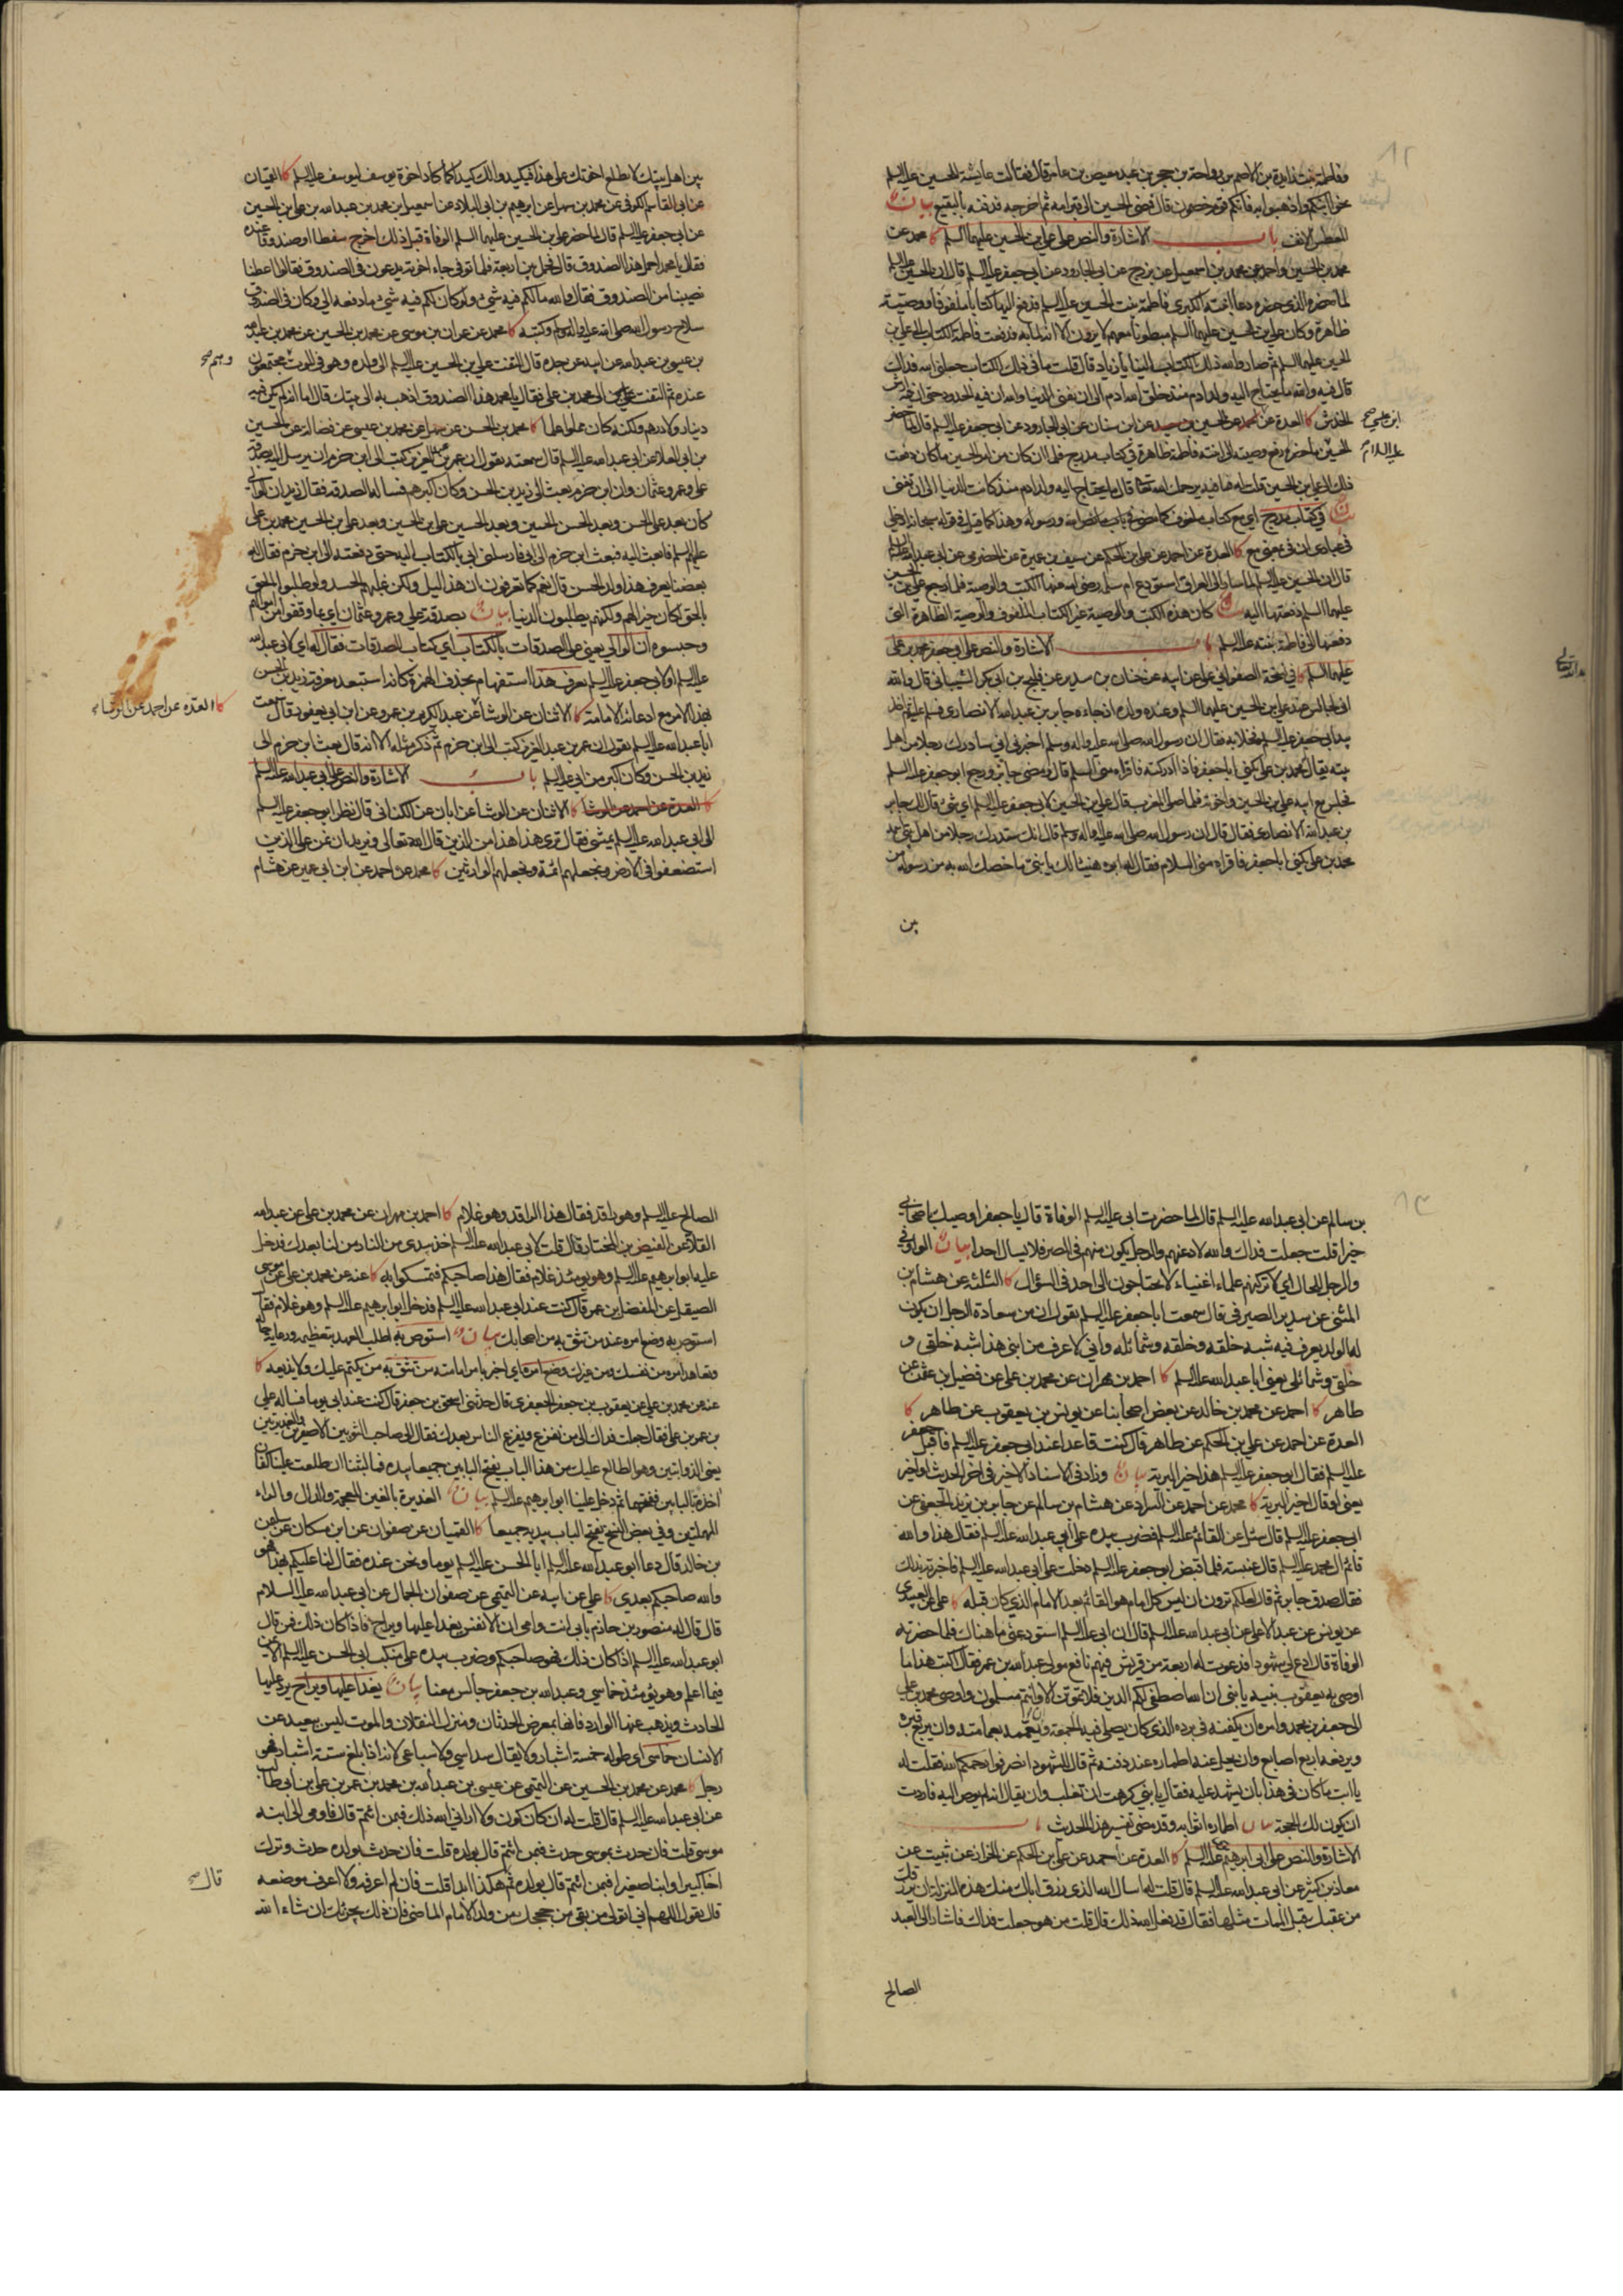 وفاطمة بنت زايدة بن الاصم بن رواحة بن حجر بن عبد معيص بن عامر قال فقالت عايشة للحسين عليه السلم
نحوا ابنكم واذهبوا به فانكم قوم خصمون قال فمضى الحسين الى قبر امه ثم اخرجه فدفنه بالبقيع بيان
المعطس الانف باب الاشارة والنص على علي بن الحسين عليهما السلم كا محمد عن
محمد بن الحسين واحمد عن محمد بن اسمعيل عن بزرج عن ابي الجارود عن ابي جعفر عليه السلم قال ان الحسين بن علي
لما حضره الذي حضره دعا ابنته الكبرى فاطمة بنت الحسين عليه السلم فدفع اليها كتابا ملفوفا ووصيته
ظاهرة وكان علي بن الحسين عليهما السلم مبطونا معهم لا يرون الا انه لما به فدفعت فاطمة الكتاب الى علي بن
الحسين عليهما السلم ثم صار والله ذلك الكتاب الينا يا زياد قال قلت ما في ذلك الكتاب جعلني الله فداك
قال فيه والله ما يحتاج اليه ولد ادم منذ خلق الله ادم الى ان تفنى الدنيا والله ان فيه الحدود حتى ان فيه ارش
الخدش كا العدة عن احمد عن الحسين بن سعيد عن ابن سنان عن ابي الجارود عن ابي جعفر عليه السلم قال لما حضر
الحسين ما حضره دفع وصيته الى ابنته فاطمة ظاهرة في كتاب مدرج فلما ان كان من امر الحسين ما كان دفعت
ذلك الى علي بن الحسين قلت له فما فيه يرحمك الله فقال ما يحتاج اليه ولد ادم منذ كانت الدنيا الى ان تفنى
بيان في كتاب مدرج اي مع كتاب ملفوف كما مضى في باب ما نص الله ورسوله وهذا كما قيل في قوله سبحانه ادخلي
في عبادي ان في بمعنى مع كا العدة عن احمد عن علي بن الحكم عن سيف بن عميرة عن الحضرمي عن ابي عبد الله عليه السلم
قال ان الحسين عليه السلم لما سار الى العراق استودع ام سلمة رضي الله عنها الكتب والوصية فلما رجع علي بن الحسين
عليهما السلم دفعتها اليه بيان كان هذه الكتب والوصية غير الكتاب الملفوف والوصية الظاهرة التي
دفعها الى فاطمة بنته عليه السلم باب الاشارة والنص على ابي جعفر محمد بن علي
عليهما السلم كا في نسخة الصفواني علي عن ابيه عن حنان بن سدير عن فليح بن ابي بكر الشيباني قال والله
اني لجالس عند علي بن الحسين عليهما السلم وعنده ولده اذ جاءه جابر بن عبد الله الانصاري فسلم عليه ثم اخذ
بيد ابي جعفر عليه السلم فخلا به فقال ان رسول الله صلى الله عليه واله وسلم اخبرني اني سادرك رجلا من اهل
بيته يقال له محمد بن علي يكنى ابا جعفر فاذا ادركته فاقراه مني السلم قال ومضى جابر ورجع ابو جعفر عليه السلم
فجلس مع ابيه علي بن الحسين واخوته فلما صلى المغرب قال علي بن الحسين لابي جعفر عليه السلم اي شئ قال لك جابر
بن عبد الله الانصاري فقال قال ان رسول الله صلى الله عليه واله وسلم قال انك ستدرك رجلا من اهل بيتي اسمه
محمد بن علي يكنى ابا جعفر فاقراه مني السلام فقال له ابوه هنيئا لك يا بني ما خصك الله به من رسوله من
بن
بين اهل بيتك لا تطلع اخوتك على هذا فيكيدوا لك كيدا كما كاد اخوة يوسف ليوسف عليه السلم كا القميان
عن ابي القاسم الكوفي عن محمد بن سهل عن ابراهيم بن ابي البلاد عن اسمعيل بن محمد بن عبد الله بن علي بن الحسين
عن ابي جعفر عليه السلم قال لما حضر علي بن الحسين عليهما السلم الوفاة قبل ذلك اخرج سفطا او صندوقا عنده
فقال يا محمد احمل هذا الصندوق قال فحمل بين اربعة فلما توفي جاء اخوته يدعون في الصندوق فقالوا اعطنا
نصيبنا من الصندوق فقال والله ما لكم فيه شئ ولو كان لكم فيه شئ ما دفعه الي وكان في الصندوق
سلاح رسول الله صلى الله عليه واله وسلم وكتبه كا محمد عن عمران بن موسى عن محمد بن الحسين عن محمد بن عبد الله
بن عيسى بن عبد الله عن ابيه عن جده قال التفت علي بن الحسين عليه السلم الى ولده وهو في الموت مجتمعون
وهم صح
عنده ثم التفت الى محمد بن علي فقال يا محمد هذا الصندوق اذهب به الى بيتك قال اما انه لم يكن فيه
دينار ولا درهم ولكنه كان مملوا علما كا محمد بن الحسن عن سهل عن محمد بن عيسى عن فضالة عن الحسين
بن ابي العلا عن ابي عبد الله عليه السلم قال سمعته يقول ان عمر بن عبد العزيز كتب الى ابن حزم ان يرسل اليه بصدقة
علي وعمر وعثمان وان ابن حزم بعث الى زيد بن الحسن وكان اكبرهم فساله الصدقة فقال زيد ان الوالي
كان بعد علي الحسن وبعد الحسن الحسين وبعد الحسين علي بن الحسين وبعد علي بن الحسين محمد بن علي
عليهم السلم فابعث اليه فبعث ابن حزم الى ابي فارسلني ابي بالكتاب اليه حتى دفعته الى ابن حزم فقال له
بعضنا يعرف هذا ولد الحسن قال نعم كما تعرفون ان هذا ليل ولكن غلبهم الحسد ولو طلبوا الحق
بالحق لكان خيرا لهم ولكنهم يطلبون الدنيا بيان بصدقة علي وعمر وعثمان اي بما وقفوا من اموالهم
وحبسوه ان الوالي يعني على الصدقات بالكتاب اي كتاب الصدقات فقال له اي لابي عبد الله
عليه السلم او لابي جعفر عليه السلم يعرف هذا استفهام بحذف الهمزة كانه استبعد معرفة زيد بن الحسن
بهذا الامر مع ادعائه الامامة كا الاثنان عن الوشاء عن عبد الكريم بن عمرو عن ابن ابي يعفور قال سمعت
كا العدة عن احمد عن الوشاء
ابا عبد الله عليه السلم يقول ان عمر بن عبد العزيز كتب الى ابن حزم ثم ذكر مثله الا انه قال بعث ابن حزم الى
زيد بن الحسن وكان اكبر من ابي عليه السلم باب الاشارة والنص على ابي عبد الله عليه السلم
كا العدة عن احمد عن الوشا كا الاثنان عن الوشا عن ابان عن الكناني قال نظر ابو جعفر عليه السلم
الى ابي عبد الله عليه السلم يمشي فقال ترى هذا هذا من الذين قال الله تعالى ونريد ان نمن على الذين
استضعفوا في الارض ونجعلهم ائمة ونجعلهم الوارثين كا محمد عن احمد عن ابن ابي عمير عن هشام
بن سالم عن ابي عبد الله عليه السلم قال لما حضرت ابي عليه السلم الوفاة قال يا جعفر اوصيك باصحابي
خيرا قلت جعلت فداك والله لادعنهم والرجل يكون منهم في المصر فلا يسال احدا بيان الواو في
والرجل للحال اي لاتركنهم علماء اغنياء لا يحتاجون الى احد في السؤال كا الثلثة عن هشام بن
المثنى عن سدير الصيرفي قال سمعت ابا جعفر عليه السلم يقول ان من سعادة الرجل ان يكون
له الولد يعرف فيه شبه خلقه وخلقه وشمائله واني لاعرف من ابني هذا شبه خلقي و
خلقي وشمائلي يعني ابا عبد الله عليه السلم كا احمد بن مهران عن محمد بن علي عن فضيل بن عثمن عن
طاهر كا احمد عن محمد بن خالد عن بعض اصحابنا عن يونس بن يعقوب عن طاهر كا
العدة عن احمد عن علي بن الحكم عن طاهر قال كنت قاعدا عند ابي جعفر عليه السلم فاقبل جعفر
عليه السلم فقال ابو جعفر عليه السلم هذا خير البرية بيان وزاد في الاسناد الاخير في اخر الحديث او اخير
يعني او قال اخير البرية كا محمد عن احمد عن السراد عن هشام بن سالم عن جابر بن يزيد الجعفي عن
ابي جعفر عليه السلم قال سئل عن القائم عليه السلم فضرب بيده على ابي عبد الله عليه السلم فقال هذا والله
قائم ال محمد عليه السلم قال عنبسة فلما قبض ابو جعفر عليه السلم دخلت على ابي عبد الله عليه السلم فاخبرته بذلك
فقال صدق جابر ثم قال لعلكم ترون ان ليس كل امام هو القائم بعد الامام الذي كان قبله كا علي عن العبيدي
عن يونس عن عبد الاعلى عن ابي عبد الله عليه السلم قال ان ابي عليه السلم استودعني ما هناك فلما حضرته
الوفاة قال ادع لي شهودا فدعوت له اربعة من قريش فيهم نافع مولى عبد الله بن عمر فقال اكتب هذا ما
اوصى به يعقوب بنيه يا بني ان الله اصطفى لكم الدين فلا تموتن الا وانتم مسلمون واوصى محمد بن علي
الى جعفر بن محمد وامره ان يكفنه في برده الذي كان يصلي فيه الجمعة وان يعممه بعمامته وان يربع قبره
ويرفعه اربع اصابع وان يحل عنه اطماره عند دفنه ثم قال للشهود انصرفوا رحمكم الله فقلت له
يا ابت ما كان في هذا بان يشهد عليه فقال يا بني كرهت ان تغلب وان يقال انه لم يوص اليه فاردت
ان يكون لك الحجة بيان اطماره اثوابه وقد مضى تفسير هذا الحديث باب
الاشارة والنص على ابي ابراهيم عليه السلم كا العدة عن احمد عن علي بن الحكم عن الخراز عن ثبيت عن
معاذ بن كثير عن ابي عبد الله عليه السلم قال قلت له اسال الله الذي رزق اباك منك هذه المنزلة ان يرزقك
من عقبك قبل الممات مثلها فقال قد فعل الله ذلك قال قلت من هو جعلت فداك فاشار الى العبد
الصالح
الصالح عليه السلم وهو راقد فقال هذا الراقد وهو غلام كا احمد بن مهران عن محمد بن علي عن عبد الله
القلا عن الفيض بن المختار قال قلت لابي عبد الله عليه السلم خذ بيدي من النار من لنا بعدك فدخل
عليه ابو ابرهيم عليه السلم وهو يومئذ غلام فقال هذا صاحبكم فتمسكوا به كا عنه عن محمد بن علي عن موسى
الصيقل عن المفضل بن عمر قال كنت عند ابي عبد الله عليه السلم فدخل ابو ابرهيم عليه السلم وهو غلام فقال
استوص به وضع امره عند من تثق به من اصحابك بيان استوص به اطلب العهد بتعظيمه ورعاية حاله
وتعاهد امره من نفسك ومن غيرك وضع امره اي اخبر بامر امامته من تثق به من يكتم عليك ولا يذيعه كا
عنه عن محمد بن علي عن يعقوب بن جعفر الجعفري قال حدثني اسحق بن جعفر قال كنت عند ابي يوما فساله علي
بن عمر بن علي فقال جعلت فداك الى من نفزع ويفزع الناس بعدك فقال الى صاحب الثوبين الاصفرين والغديرتين
يعني الذوابتين وهو الطالع عليك من هذا الباب يفتح البابين جميعا بيده فما لبثنا ان طلعت علينا كفان
اخذة بالبابين ففتحهما ثم دخل علينا ابو ابرهيم عليه السلم بيان الغديرة بالغين المعجمة والدال والراء
المهملتين وفي بعض النسخ يفتح الباب بيديه جميعا كا القميان عن صفوان عن ابن مسكان عن سليمن
بن خالد قال دعا ابو عبد الله عليه السلم ابا الحسن عليه السلم يوما ونحن عنده فقال لنا عليكم بهذا فهو
والله صاحبكم بعدي كا علي عن ابيه عن التميمي عن صفوان الجمال عن ابي عبد الله عليه السلام
قال قال له منصور بن حازم بابي انت وامي ان الانفس يغدا عليها ويراح فاذا كان ذلك فمن قال
ابو عبد الله عليه السلم اذا كان ذلك فهو صاحبكم وضرب بيده على منكب ابي الحسن عليه السلم الايمن
فيما اعلم وهو يومئذ خماسي وعبد الله بن جعفر جالس معنا بيان يغدا عليها ويراح يرد عليها
الحادث ويذهب عنها الوارد فانها بمعرض الحدثان ومنزل النقلان والموت ليس ببعيد عن
الانسان خماسي اي طوله خمسة اشبار ولا يقال سداسي ولا سباعي لانه اذا بلغ ستة اشبار فهو
رجل كا محمد عن محمد بن الحسين عن التميمي عن عيسى بن عبد الله بن محمد بن عمر بن علي بن ابي طالب
عن ابي عبد الله عليه السلم قال قلت له ان كان كون ولا اراني الله ذلك فبمن ائتم قال فاومى الى ابنه
موسى قلت فان حدث بموسى حدث فبمن ائتم قال بولده قلت فان حدث بولده حدث وترك
اخا كبيرا وابنا صغيرا فبمن ائتم قال بولده ثم هكذا ابدا قلت فان لم اعرفه ولا اعرف موضعه
قال صح
قال يقول اللهم اني اتولى من بقي من حججك من ولد الامام الماضي فان ذلك يجزئك ان شاء الله